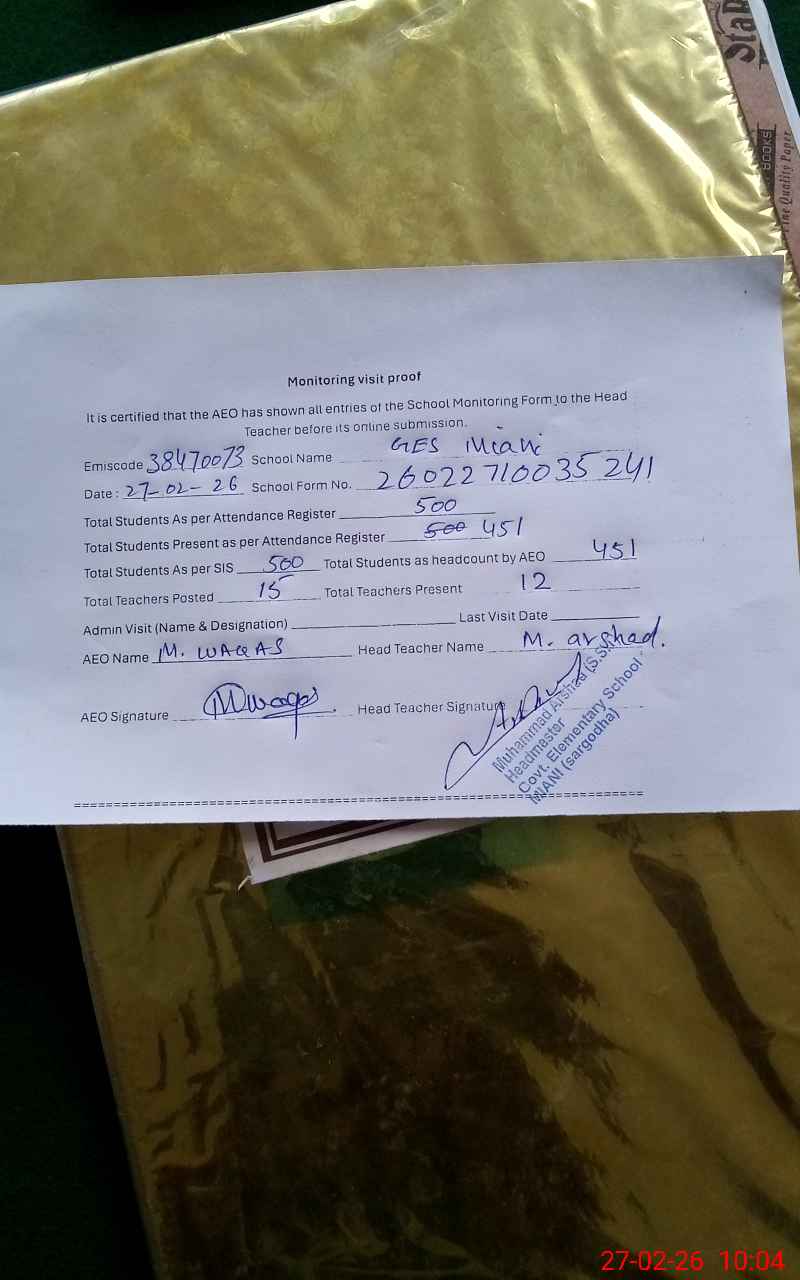 StaR
BOOKS
Fine Quality Paper
Monitoring visit proof
It is certified that the AEO has shown all entries of the School Monitoring Form to the Head
Teacher before its online submission.
Emiscode 38470073 School Name GES Miani
Date : 27-02-26 School Form No. 26022710035241
Total Students As per Attendance Register 500
Total Students Present as per Attendance Register 500 451
Total Students As per SIS 500 Total Students as headcount by AEO 451
Total Teachers Posted 15 Total Teachers Present 12
Admin Visit (Name & Designation) Last Visit Date
AEO Name M. WAQAS Head Teacher Name M. arshad.
AEO Signature MWaqas Head Teacher Signature
Muhammad Arshad (S.S.)
Headmaster
Govt. Elementary School
MIANI (sargodha)
27-02-26 10:04